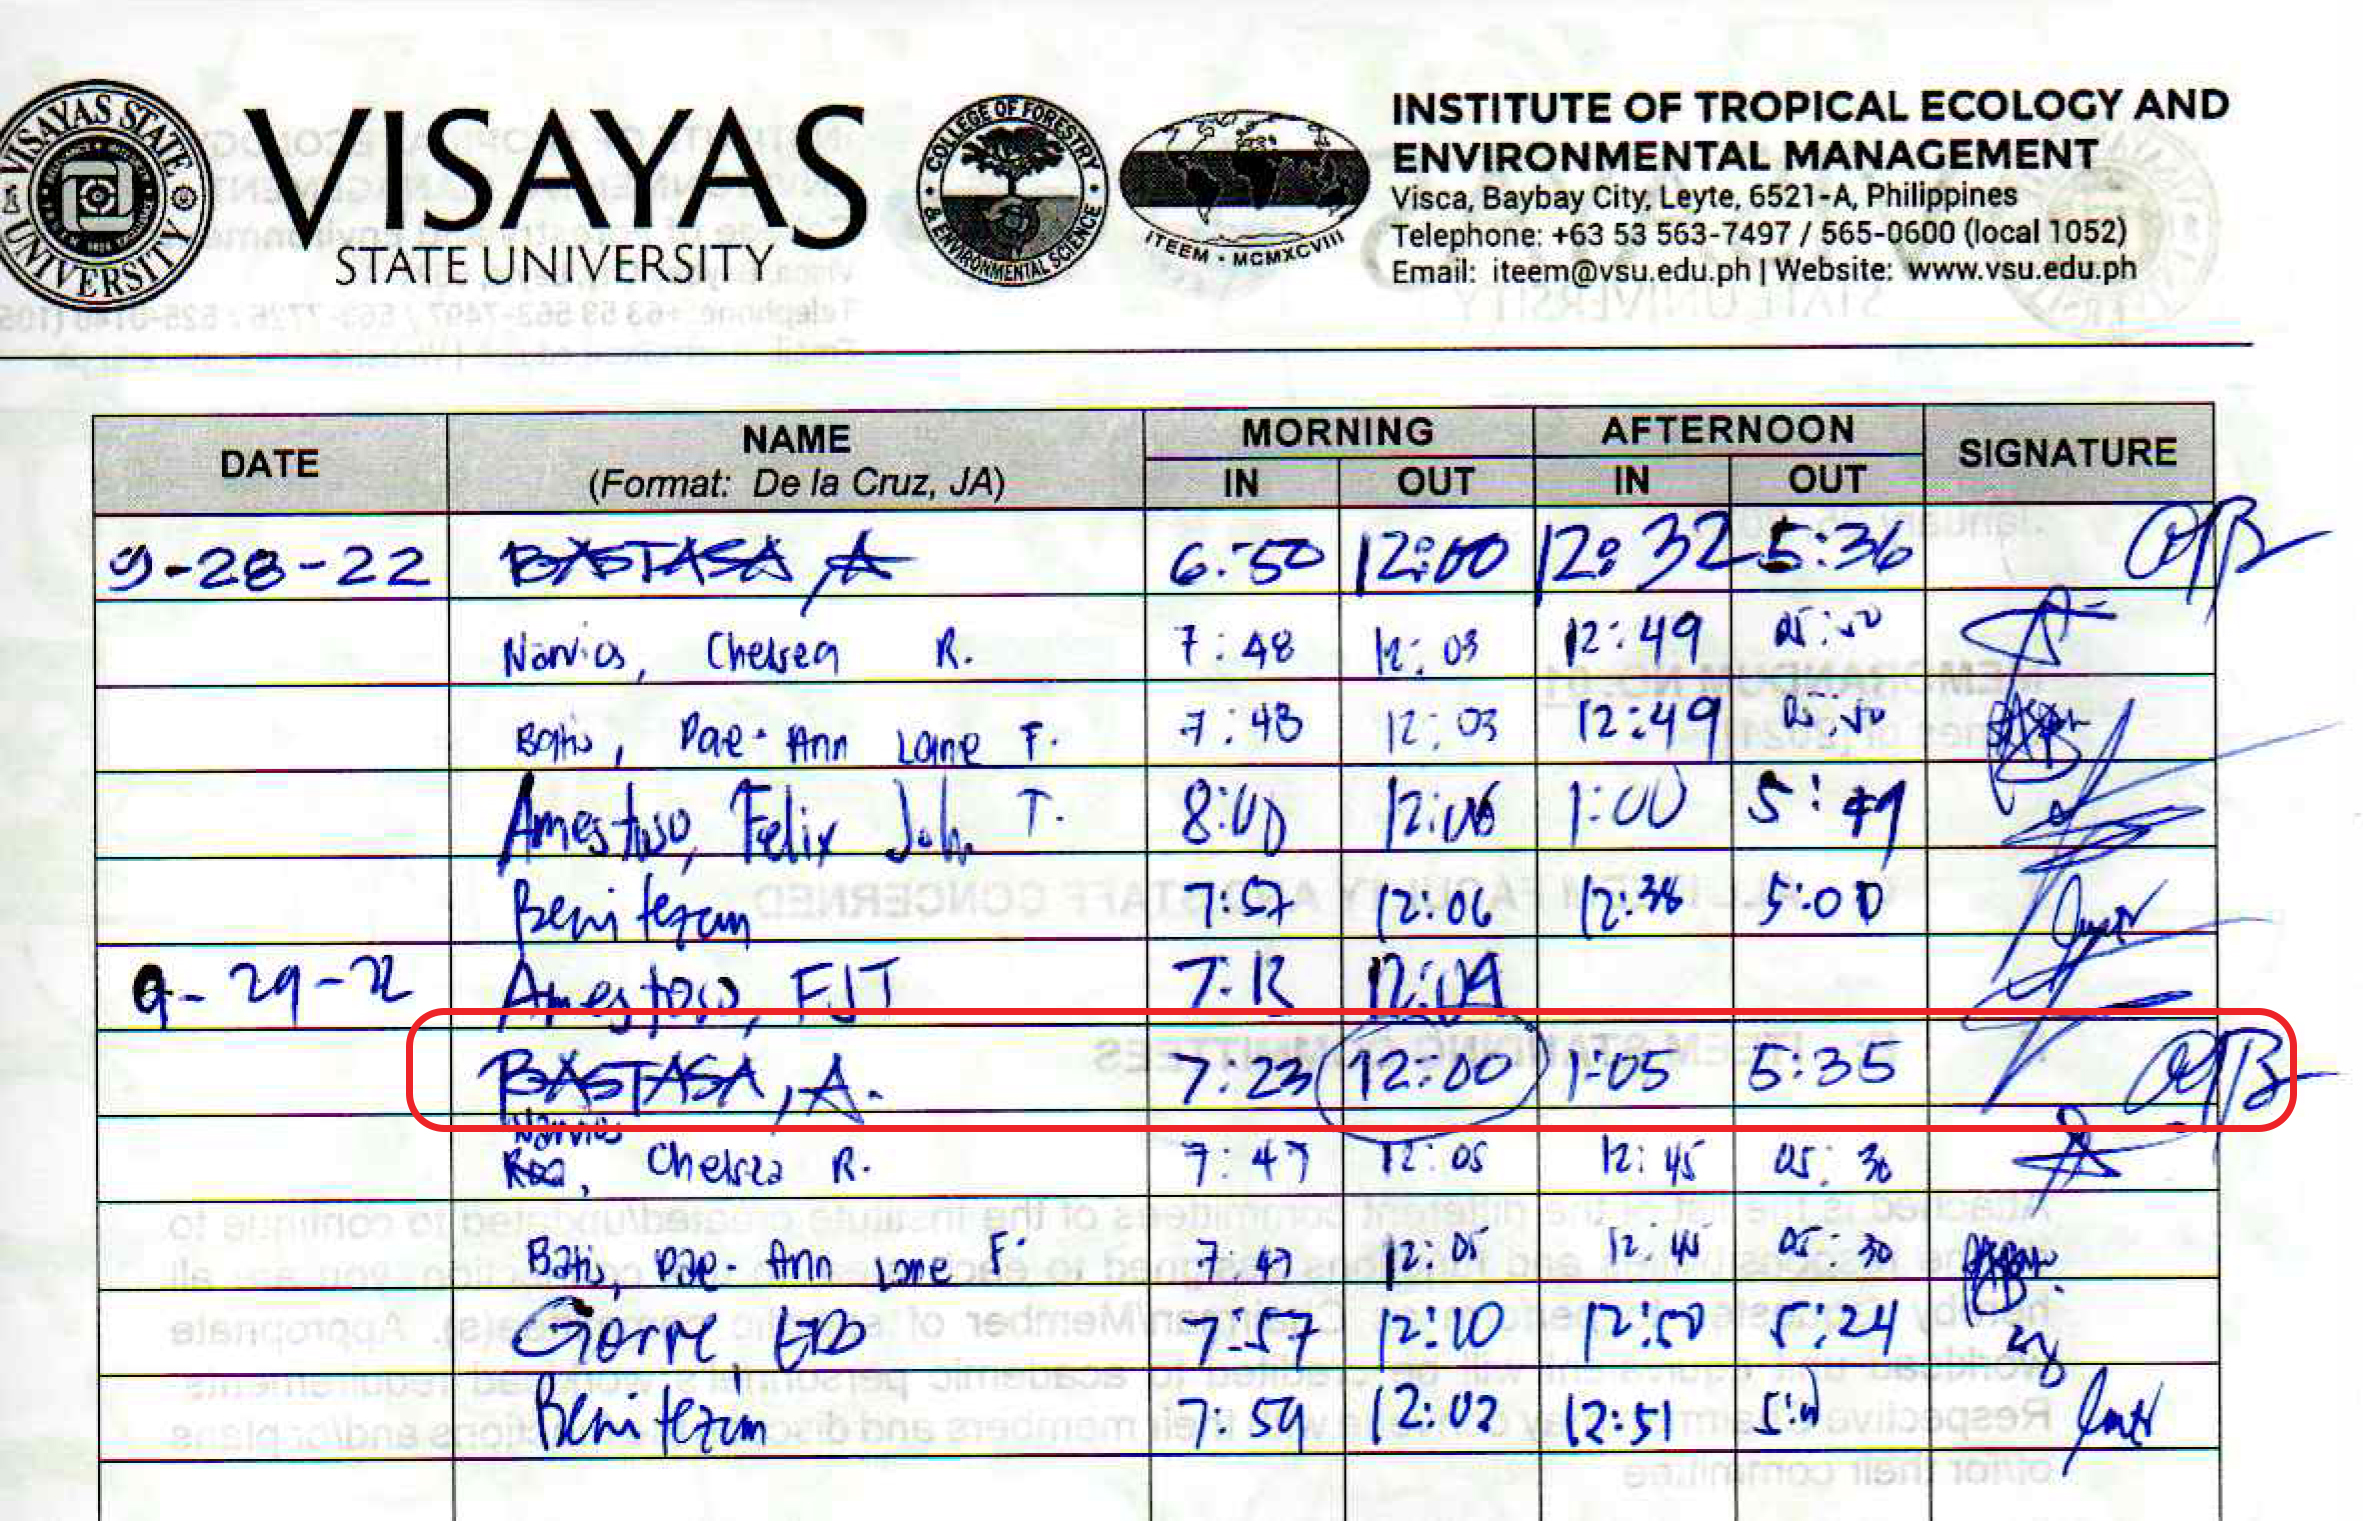 VISAYAS STATE UNIVERSITY
VISAYAS
STATE UNIVERSITY
COLLEGE OF FORESTRY & ENVIRONMENTAL SCIENCE
ITEEM • MCMXCVIII
INSTITUTE OF TROPICAL ECOLOGY AND
ENVIRONMENTAL MANAGEMENT
Visca, Baybay City, Leyte, 6521-A, Philippines
Telephone: +63 53 563-7497 / 565-0600 (local 1052)
Email: iteem@vsu.edu.ph | Website: www.vsu.edu.ph
DATE NAME MORNING AFTERNOON SIGNATURE
(Format: De la Cruz, JA) IN OUT IN OUT
9-28-22 BASTASA, A 6:50 12:00 12:32 5:36
Narvios, Chelsea R. 7:48 12:03 12:49 05:50
Batis, Dae-Ann Lane F. 7:48 12:03 12:49 05:50
Amestoso, Felix John T. 8:00 12:06 1:00 5:49
7:57 12:06 12:38 5:00
9-29-22 Amestoso, FJT 7:12 12:09
BASTASA, A. 7:23 12:00 1:05 5:35
Narvios
Chelsea R. 7:47 12:05 12:45 05:30
Batis, Dae-Ann Lane F. 7:47 12:05 12:45 05:30
Gorre, 7:57 12:10 12:50 5:24
7:59 12:02 12:51